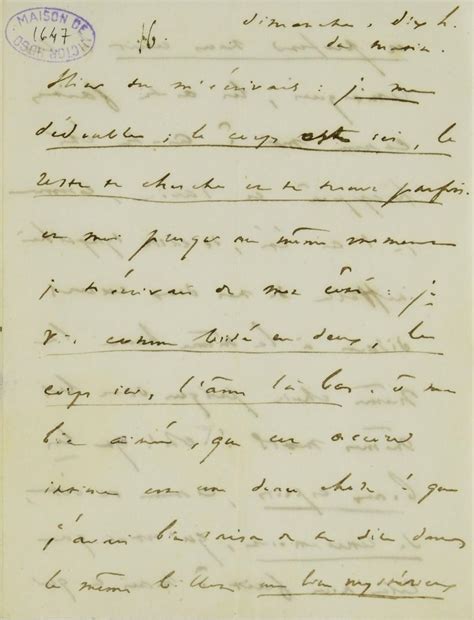 MAISON DE VICTOR HUGO
1647
16
dimanche, dix h.
du matin.
Hier tu m'écrivais : je me
dédouble, le corps est ici, le
reste te cherche et te trouve parfois.
et moi presque au même moment
je t'écrivais de mon côté : je
vis comme brisé en deux, le
corps ici, l'âme là bas. ô ma
bien aimée, que cet accord
intime est une douce chose & que
j'avais bien raison de te dire dans
le même billet un lien mystérieux